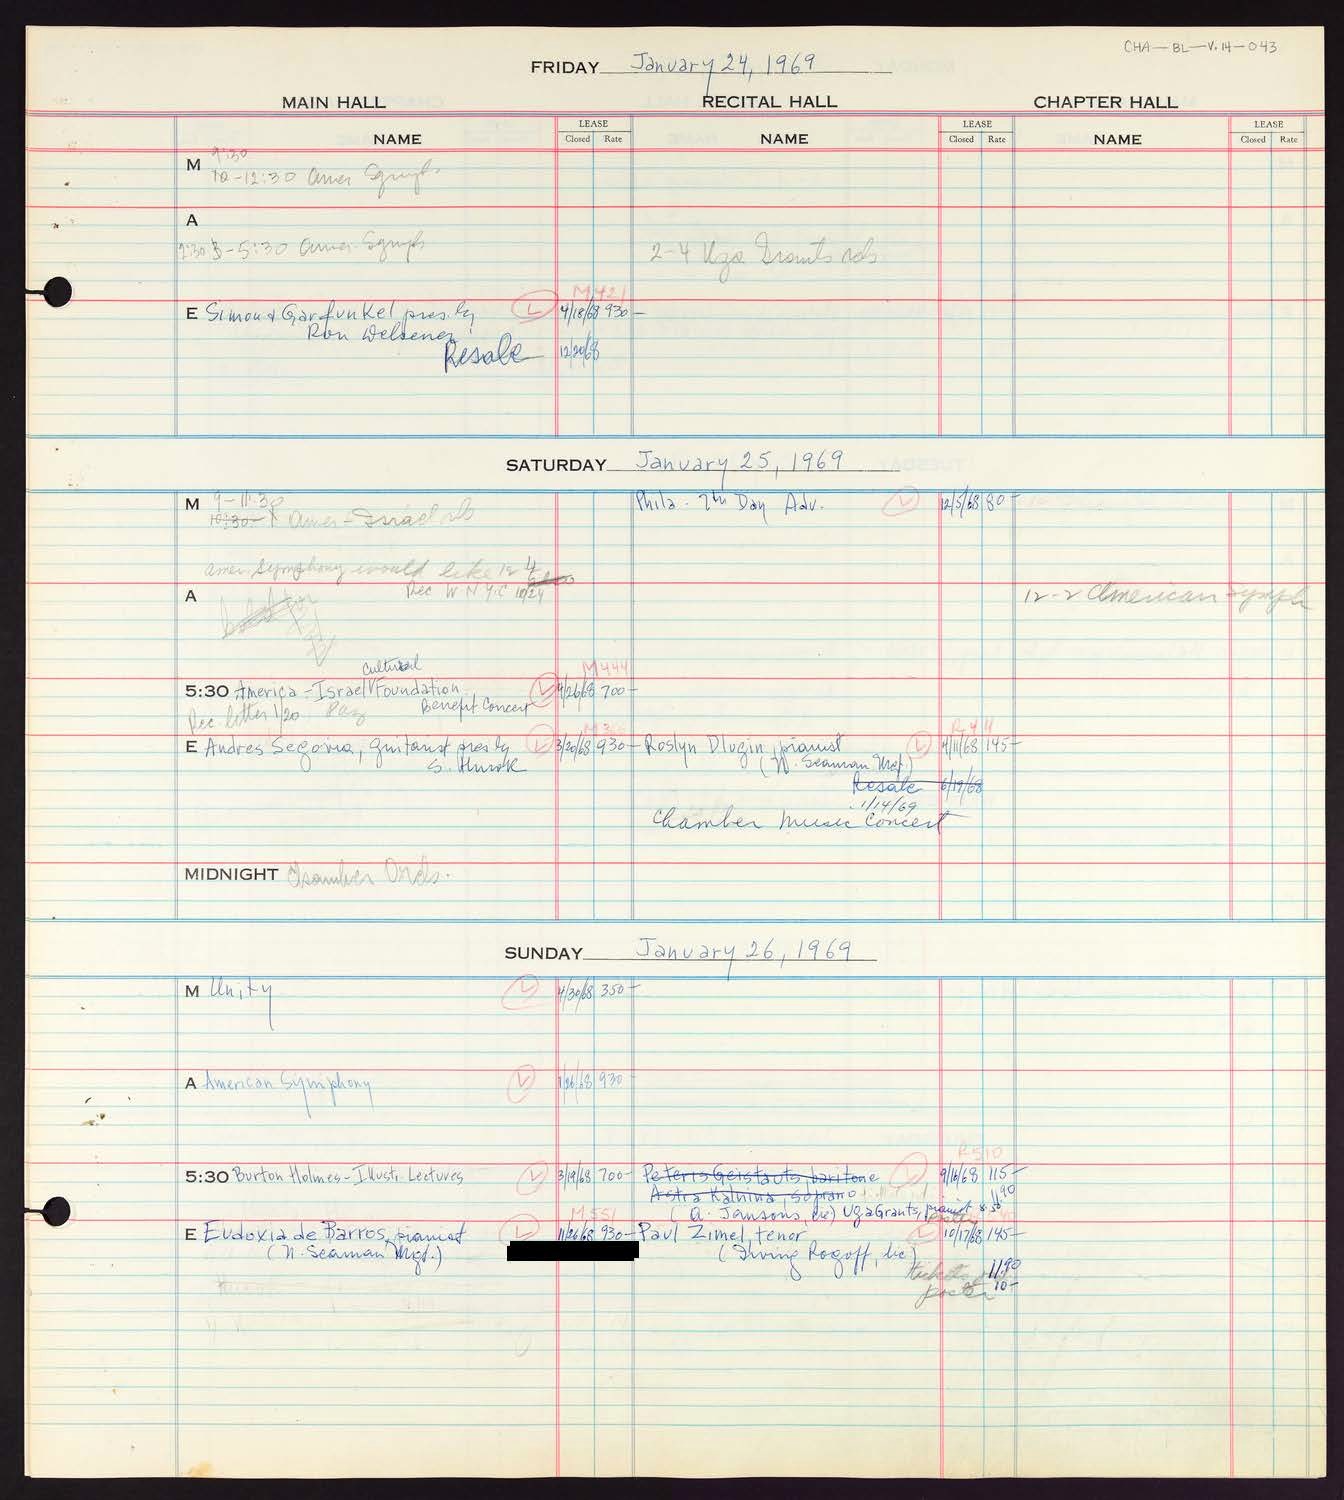 CHA-BL-V.14-043
FRIDAY January 24, 1969
MAIN HALL RECITAL HALL CHAPTER HALL
NAME LEASE Closed Rate NAME LEASE Closed Rate NAME LEASE Closed Rate
9:30
M 10-12:30 Amer Symph
A
2:30 3-5:30 Amer. Symph 2-4 Uga Grants
M421
E Simon & Garfunkel pres by L 4/18/68 930-
Ron Delsener
Resale 12/20/68
SATURDAY January 25, 1969
M 9-11:30 Phila. 7th Day Adv. L 12/5/68 80-
10:30-1 Amer-Israel
Amer. Symphony would like 12
Rec WNYC 10/24
A 12-2 American Symph
Cultural M444
5:30 America-Israel V Foundation L 4/26/68 700-
Rec. letter 1/20 Benefit Concert
R411
E Andres Segovia, guitarist pres by L 3/20/68 930- Roslyn Dlugin, pianist L 4/11/68 145-
S. Hurok (N. Seaman Mgt.)
Resale 6/19/68
1/14/69
Chamber Music Concert
MIDNIGHT
SUNDAY January 26, 1969
M Unity L 4/30/68 350-
A American Symphony L 1/26/68 930-
R510
5:30 Burton Holmes-Illustr. Lectures L 3/19/68 700- Peteris Geistauts, baritone L 9/16/68 115-
Astra Kalnina, soprano 11.90
M551 (A. Jansons, ) Uga Grants, pianist
E Eudoxia de Barros, pianist L 11/26/68 930- Paul Zimel, tenor L 10/17/68 145-
(N. Seaman Mgt.) (Irving Rogoff, )
tickets 11.90
poster 10-